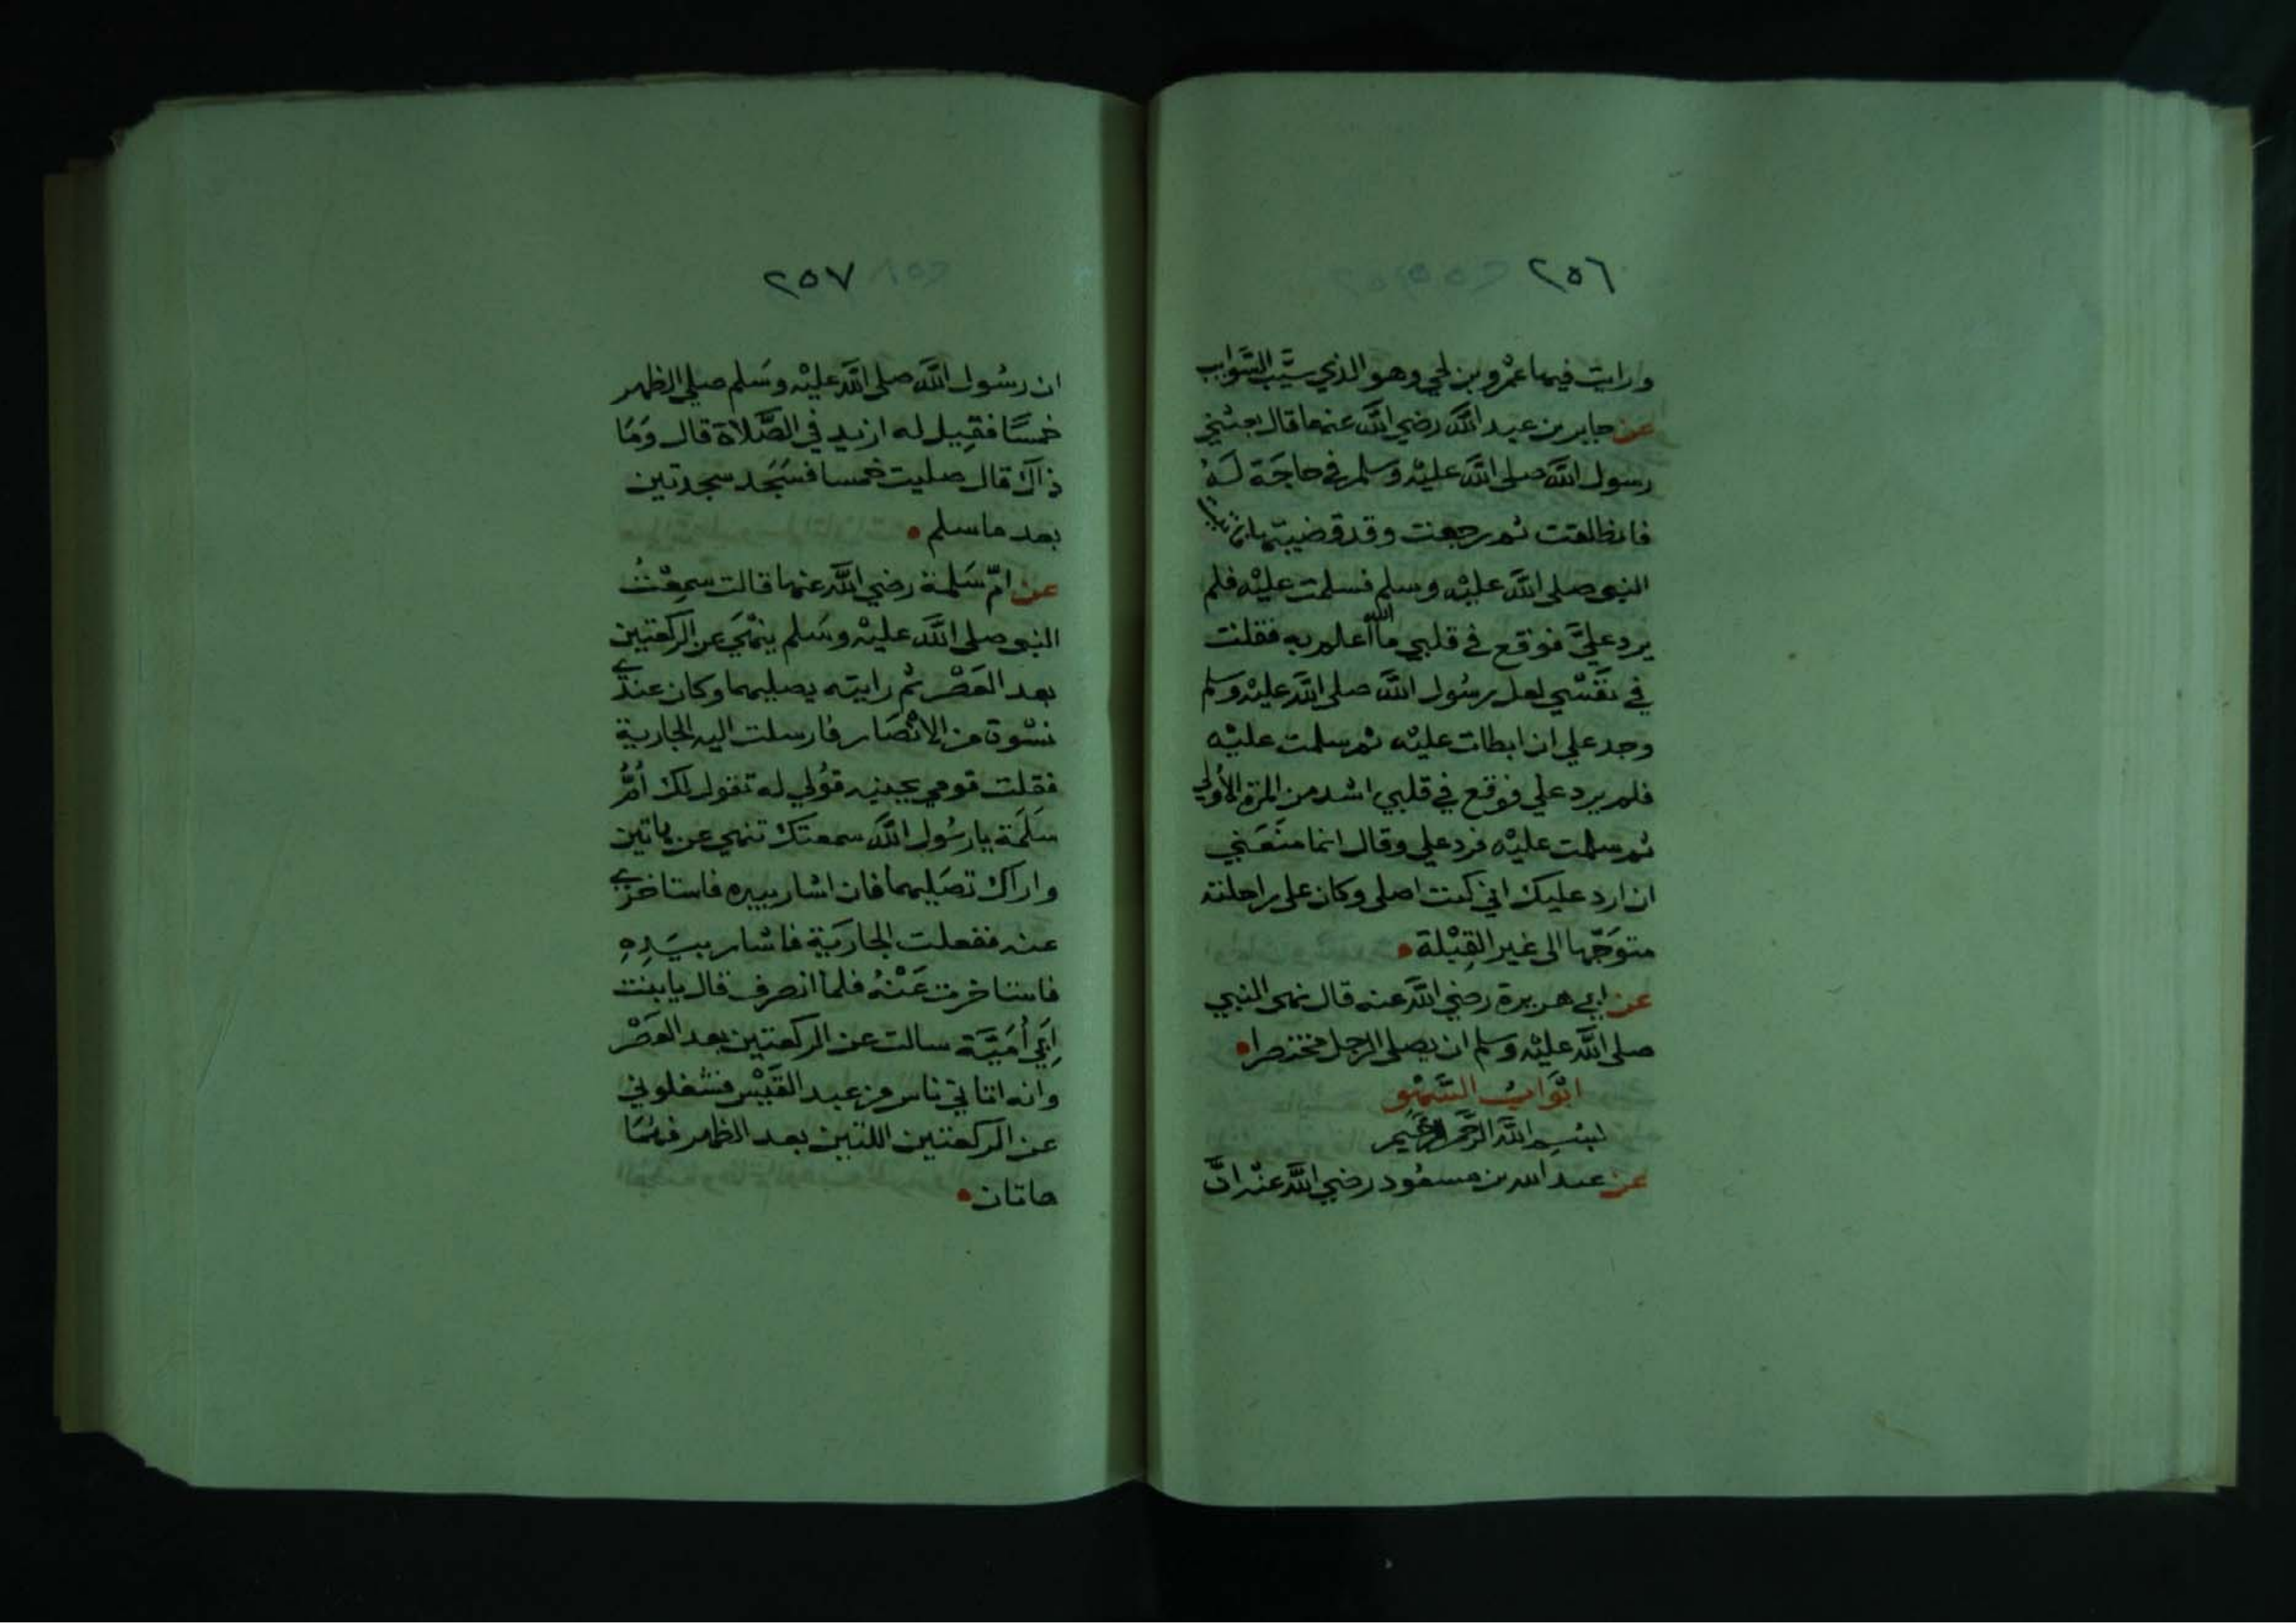 ٢٥٦
ورايت فيها عمرو بن لحي وهو الذي سيب السوايب
عن جابر بن عبد الله رضي الله عنهما قال بعثني
رسول الله صلى الله عليه وسلم في حاجة له
فانطلقت ثم رجعت وقد قضيتها فاتيت
النبي صلى الله عليه وسلم فسلمت عليه فلم
يرد عليّ فوقع في قلبي ما الله أعلم به فقلت
في نفسي لعل رسول الله صلى الله عليه وسلم
وجد علي ان ابطات عليه ثم سلمت عليه
فلم يرد علي فوقع في قلبي اشد من المرة الأولى
ثم سلمت عليه فرد علي وقال انما منعني
ان ارد عليك اني كنت اصلي وكان على راحلته
متوجها الى غير القِبْلة
عن ابي هريرة رضي الله عنه قال نهى النبي
صلى الله عليه وسلم ان يصلي الرجل مختصرا
ابواب السهو
بسم الله الرحمن الرحيم
عن عبد الله بن مسعود رضي الله عنه انّ
٢٥٧
ان رسول الله صلى الله عليه وسلم صلي الظهر
خمسًا فقيل له ازيد في الصلاة قال وما
ذاك قال صليت خمسا فسجد سجدتين
بعد ما سلم
عن امّ سلمة رضي الله عنها قالت سمعت
النبي صلى الله عليه وسلم ينهي عن الركعتين
بعد العصر ثم رايته يصليهما وكان عندي
نسوة من الانصار فارسلت اليه الجارية
فقلت قومي بجنبه قولي له تقول لك أمُّ
سلمة يا رسول الله سمعتك تنهي عن هاتين
واراك تصليهما فان اشار بيده فاستاخري
عنه ففعلت الجارية فاشار بيدِهِ
فاستاخرت عنه فلما انصرف قال يا بنت
ابي أميّة سالت عن الركعتين بعد العصر
وانه اتاني ناس من عبد القيس فشغلوني
عن الركعتين اللتين بعد الظهر فهما
هاتان